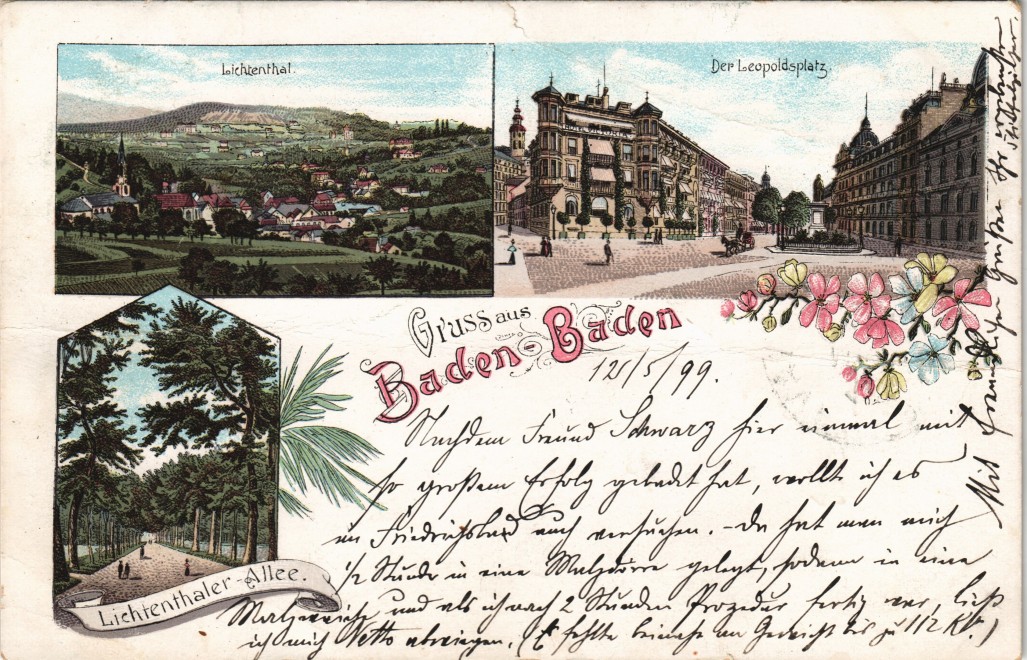 Lichtenthal.
Der Leopoldsplatz.
HOTEL VICTORIA
Gruss aus
Baden-Baden
Lichtenthaler-Allee.
12/5/99.
Nachdem Freund Schwarz hier einmal mit
so großem Erfolg gebadet hat, wollte ich es
im Friedrichsbad auch versuchen. - Da hat man mich
1/2 Stunde in eine Malzdörre gelegt, sodann in eine
Malzweiche und als ich nach 2 Stunden Prozedur fertig war, ließ
ich mich Netto abwiegen. (Es fehlte beinahe am Gewicht bis zu 1 1/2 Ko!)
Mit freundlichen Grüßen Ihr